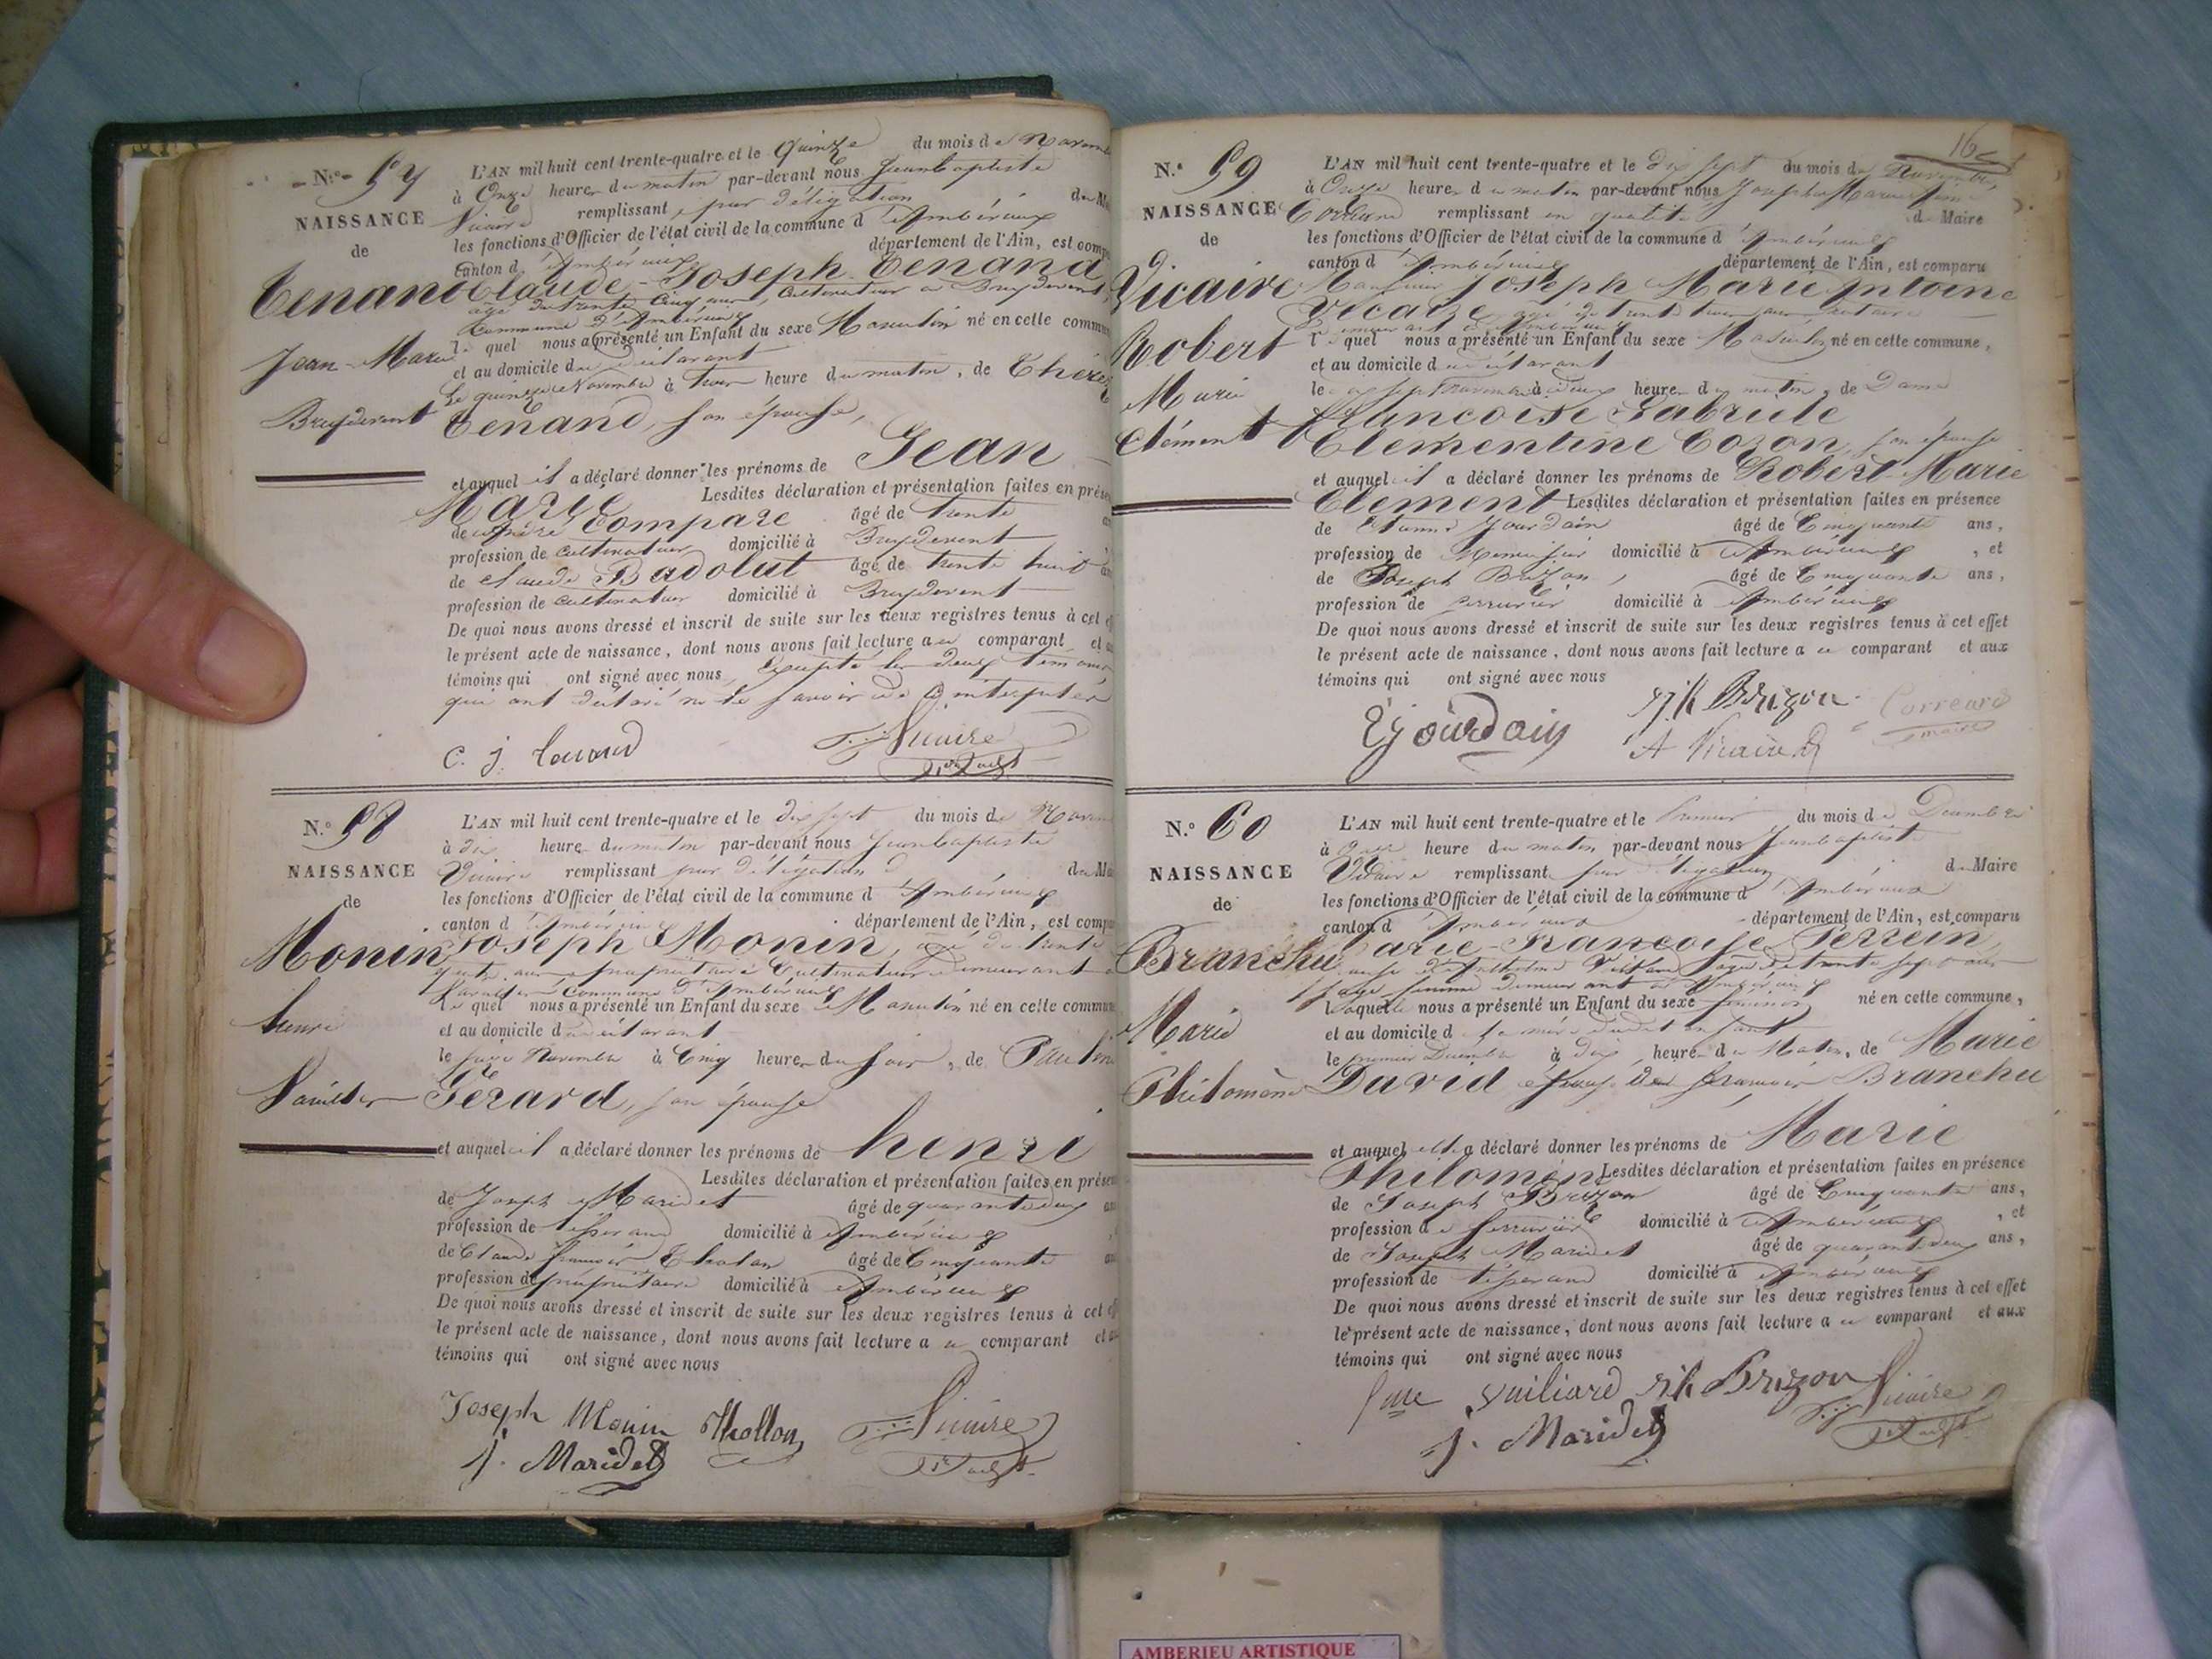 N.° 57
NAISSANCE
de
Tenand
Jean-Marie
Bruydevent
L'AN mil huit cent trente-quatre et le Quinze du mois de
à Onze heures du matin par-devant nous Jean Baptiste
Vicaire remplissant par délégation du
les fonctions d'Officier de l'état civil de la commune d'Ambérieux
canton d'Ambérieux département de l'Ain, est
Claude-Joseph Tenand
agé de trente cinq ans, Cultivateur a Bruydevent
Commune d'Ambérieux
lequel nous a présenté un Enfant du sexe Masculin né en cette
et au domicile du déclarant
le quinze Novembre à trois heure du matin, de
Tenand, son épouse,
et auquel il a déclaré donner les prénoms de Jean
Marie Lesdites déclaration et présentation faites en
de André Compare âgé de trente
profession de Cultivateur domicilié à Bruydevent
de Claude Badolat âgé de trente huit
profession de Cultivateur domicilié à Bruydevent
De quoi nous avons dressé et inscrit de suite sur les deux registres tenus à cet
le présent acte de naissance, dont nous avons fait lecture au comparant et
témoins qui ont signé avec nous, Excepté les deux témoins
qui ont déclaré ne le savoir de ce interpellés
Vicaire
N.° 58
NAISSANCE
de
Monin
henri
L'AN mil huit cent trente-quatre et le dix sept du mois de
à dix heures du matin par-devant nous Jean Baptiste
Vicaire remplissant par délégation du
les fonctions d'Officier de l'état civil de la commune d'Ambérieux
canton d'Ambérieux département de l'Ain, est
Joseph Monin, âgé de trente
quatre ans propriétaire Cultivateur demeurant
commune d'Ambérieux
lequel nous a présenté un Enfant du sexe Masculin né en cette commune
et au domicile du déclarant
le seize Novembre à Cinq heures du soir, de
Gérard, son épouse
et auquel il a déclaré donner les prénoms de henri
Lesdites déclaration et présentation faites en
de Joseph Maridet âgé de quarante deux
profession de tisserand domicilié à Ambérieux
de Claude françois Thollon âgé de Cinquante
profession de propriétaire domicilié à Ambérieux
De quoi nous avons dressé et inscrit de suite sur les deux registres tenus à cet
le présent acte de naissance, dont nous avons fait lecture au comparant et
témoins qui ont signé avec nous
Joseph Monin Thollon Vicaire
j. Maridet
N.° 59
NAISSANCE
de
Vicaire
Robert
Marie
Clément
L'AN mil huit cent trente-quatre et le dix sept du mois de Novembre
à Onze heures du matin par-devant nous Joseph Marie
remplissant en qualité de Maire
les fonctions d'Officier de l'état civil de la commune d'Ambérieux
canton d'Ambérieux département de l'Ain, est comparu
Monsieur Joseph Marie Antoine
Vicaire, agé de trente trois ans
demeurant à Ambérieux
lequel nous a présenté un Enfant du sexe Masculin né en cette commune,
et au domicile du déclarant
le dix sept Novembre à deux heures du matin, de Dame
Françoise Gabriele
Clementine Cozon, son épouse
et auquel il a déclaré donner les prénoms de Robert-Marie
Clement Lesdites déclaration et présentation faites en présence
de Etienne Jourdain âgé de Cinquante ans,
profession de Menuisier domicilié à Ambérieux, et
de Joseph Brizon, âgé de Cinquante ans,
profession de serrurier domicilié à Ambérieux
De quoi nous avons dressé et inscrit de suite sur les deux registres tenus à cet effet
le présent acte de naissance, dont nous avons fait lecture au comparant et aux
témoins qui ont signé avec nous
E jourdain jh Brizon Correard
A Vicaire maire
N.° 60
NAISSANCE
de
Branchu
Marie
Philomène
L'AN mil huit cent trente-quatre et le Premier du mois de Decembre
à onze heure du matin par-devant nous Jean Baptiste
Vicaire remplissant par délégation du Maire
les fonctions d'Officier de l'état civil de la commune d'Ambérieux
canton d'Ambérieux département de l'Ain, est comparu
Marie-Françoise Perrein,
épouse d'Anthelme agée de trente sept ans
sage femme demeurant à Ambérieux
laquelle nous a présenté un Enfant du sexe féminin né en cette commune,
et au domicile de la mère dudit enfant
le premier Decembre à dix heure du Matin, de Marie
David épouse de françois Branchu
et auquel elle a déclaré donner les prénoms de Marie
Philomène Lesdites déclaration et présentation faites en présence
de Joseph Brizon âgé de Cinquante ans,
profession de Serrurier domicilié à Ambérieux, et
de Joseph Maridet âgé de quarante deux ans,
profession de tisserand domicilié à Ambérieux
De quoi nous avons dressé et inscrit de suite sur les deux registres tenus à cet effet
le présent acte de naissance, dont nous avons fait lecture au comparant et aux
témoins qui ont signé avec nous
jh Brizon Vicaire
j. Maridet
AMBERIEU ARTISTIQUE